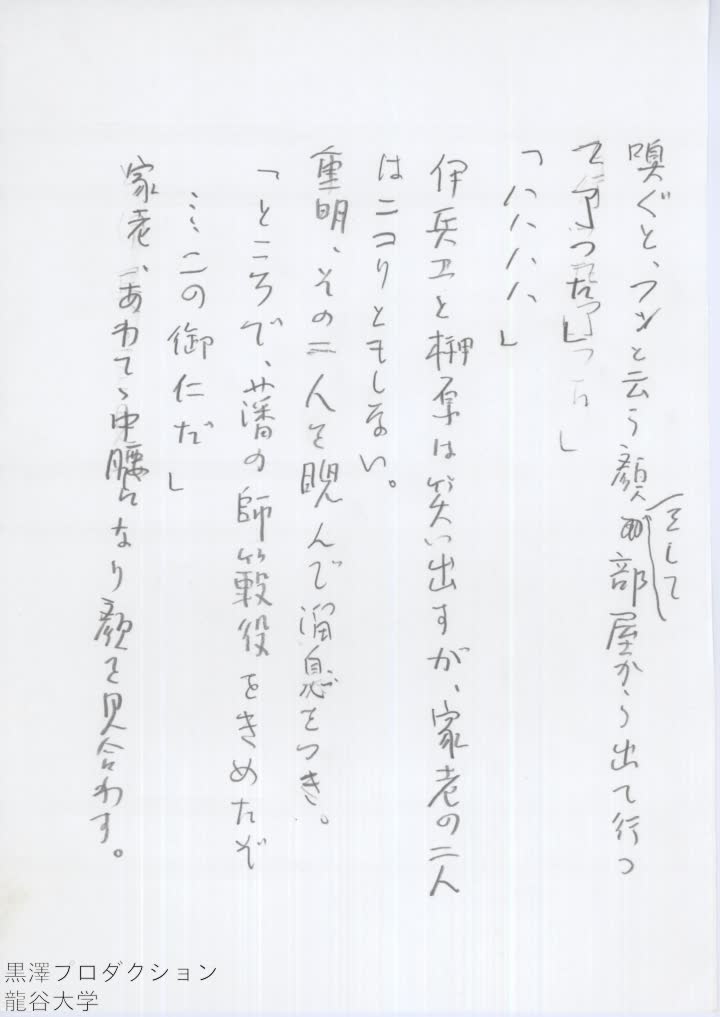 嗅ぐと、フンと云う顔をして部屋から出て行つ
て了つた」
「ハハハハ」
伊兵卫と榊原は笑い出すが、家老の二人
はニコリともしない。
重明、その二人を睨んで溜息をつき。
「ところで、藩の師範役をきめたぞ
…この御仁だ」
家老、あわてゝ中腰になり顔を見合わす。
黒澤プロダクション
龍谷大学